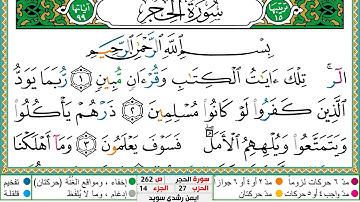 ترتيبها ١٥
سُورَةُ الحِجْرِ
آياتها ٩٩
بِسْمِ اللَّهِ الرَّحْمَٰنِ الرَّحِيمِ
الٓرۚ تِلْكَ ءَايَٰتُ الْكِتَٰبِ وَقُرْءَانٍ مُّبِينٍ ١ رُّبَمَا يَوَدُّ
الَّذِينَ كَفَرُوا۟ لَوْ كَانُوا۟ مُسْلِمِينَ ٢ ذَرْهُمْ يَأْكُلُوا۟
وَيَتَمَتَّعُوا۟ وَيُلْهِهِمُ الْأَمَلُ ۖ فَسَوْفَ يَعْلَمُونَ ٣ وَمَآ أَهْلَكْنَا
مدّ ٦ حركات لزوماً مدّ ٢ أو ٤ أو ٦ جوازاً
مدّ واجب ٤ أو ٥ حركات مدّ حركتان
سورة الحجر ص 262
الحزب 27 الجزء 14
أيمن رشدي سويد
إخفاء، ومواقع الغنّة (حركتان) تفخيم
إدغام، وما لا يُلفظ قلقلة